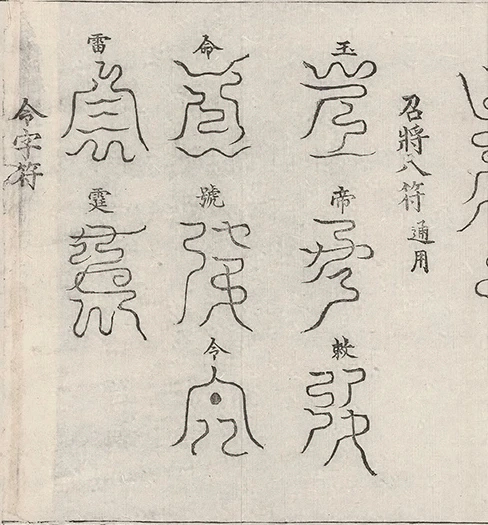 召將八符 通用
玉帝敕
命號令
雷霆
令字符